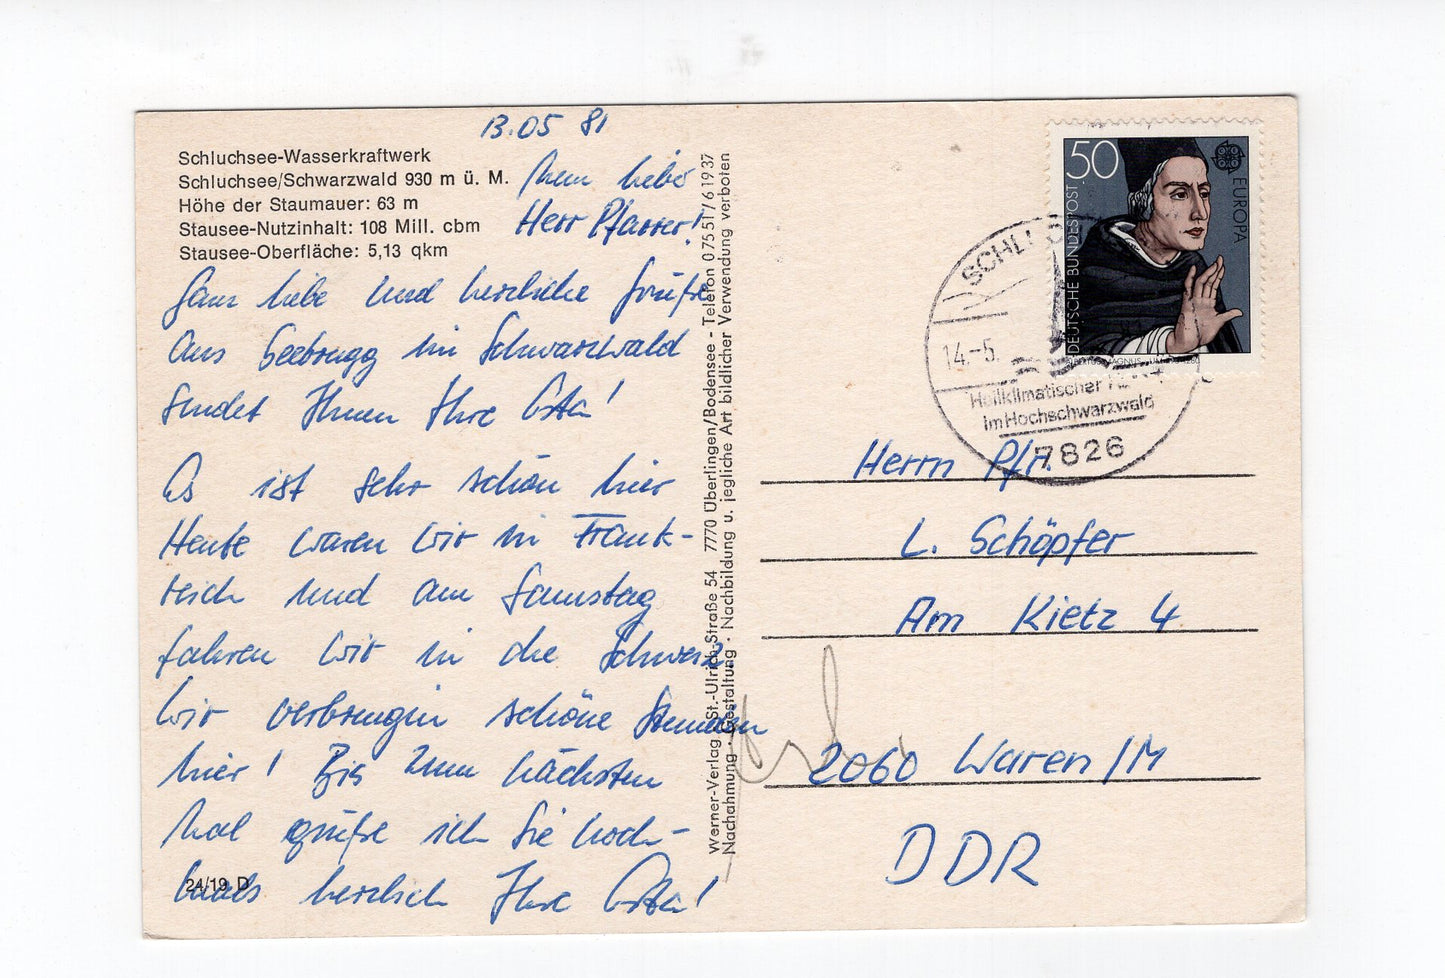 13.05 81
Schluchsee-Wasserkraftwerk
Schluchsee/Schwarzwald 930 m ü. M.
Höhe der Staumauer: 63 m
Stausee-Nutzinhalt: 108 Mill. cbm
Stausee-Oberfläche: 5,13 qkm
Mein liebr
Herr Pfarrer!
Ganz liebe und herzliche Grüße
aus Seebrugg im Schwarzwald
sendet Ihnen Ihre
Es ist sehr schön hier
Heute waren wir in Frank-
reich und am Samstag
fahren wir in die Schweiz.
Wir verbringen schöne Stunden
hier! Bis zum nächsten
Mal grüße ich Sie noch-
mals herzlich Ihre
24/19 D
Werner-Verlag · St.-Ulrich-Straße 54 7770 Überlingen/Bodensee - Telefon 07551/61937
Nachahmung · Gestaltung · Nachbildung u. jegliche Art bildlicher Verwendung verboten
50
EUROPA
DEUTSCHE BUNDESPOST
14.-5.
Heilklimatischer
im Hochschwarzwald
7826
Herrn Pfr.
L. Schöpfer
Am Kietz 4
2060 Waren/M
DDR